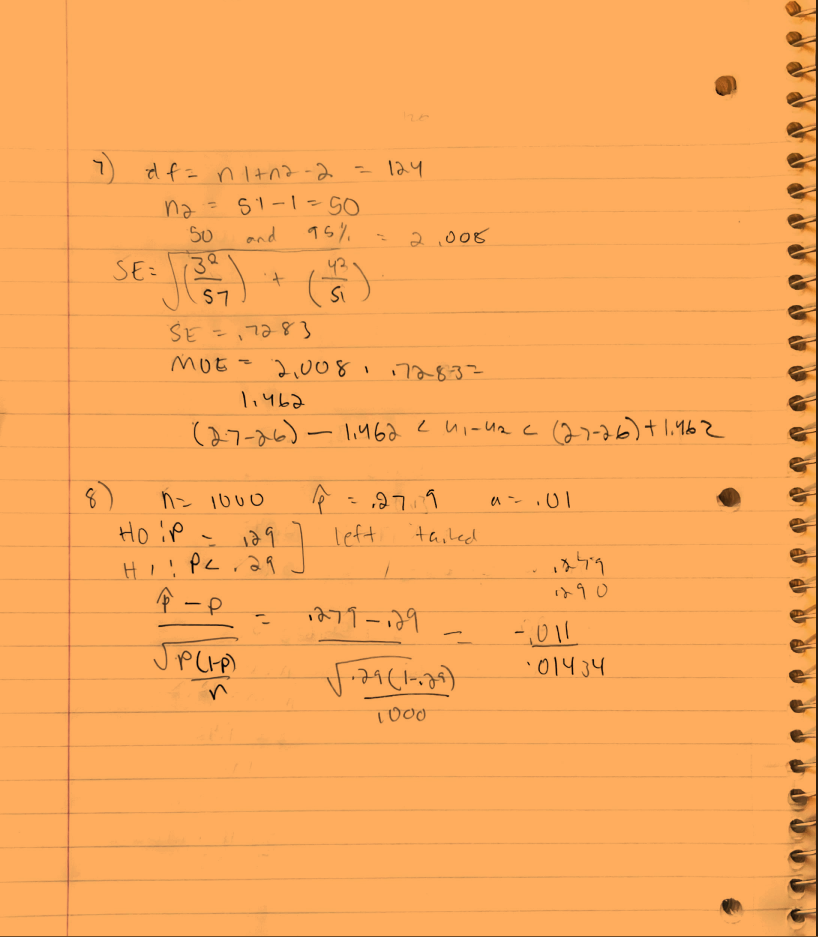 7) df = n1+n2-2 = 124
n2 = 51-1=50
50 and 95% = 2.008
SE= √(3²/57) + (4²/51)
SE = .7283
MOE = 2.008 · .7283=
1.462
(27-26) — 1.462 < u1-u2 < (27-26)+1.462
8) n= 1000 p̂ = .279 α= .01
H0: P = .29 ] left tailed
H1: P< .29
.279
.290
p̂ - p / √P(1-P)/n = .279-.29 / √.29(1-.29)/1000 = -.011 / .01434